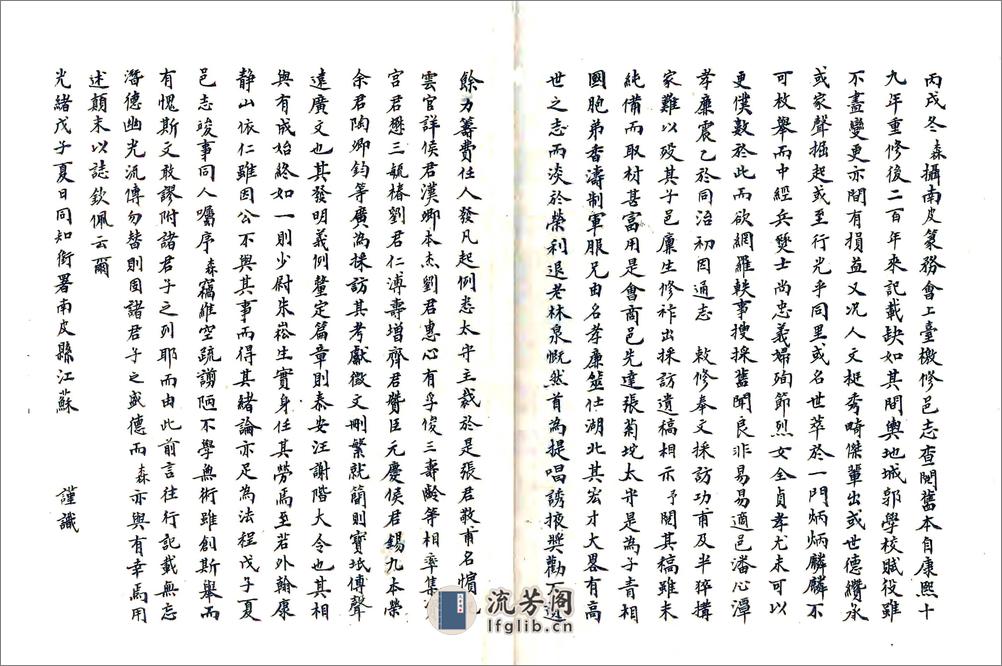 丙戌冬森攝南皮篆務會上臺檄修邑志查閱舊本自康熙十
九年重修後二百年來記載缺如其間輿地城郭學校賦役雖
不盡變更亦間有損益又況人文挺秀畸傑輩出或世德纘承
或家聲掘起或至行光乎同里或名世萃於一門炳炳麟麟不
可枚舉而中經兵燹士尚忠義婦殉節烈女全貞孝尤未可以
更僕數於此而欲網羅軼事搜採舊聞良非易易適邑潘心潭
孝廉震乙於同治初因通志 敕修奉文採訪功甫及半猝搆
家難以歿其子邑廩生修祚出採訪遺稿相示予閱其稿雖未
純備而取材甚富用是會商邑先達張菊垞太守是為子青相
國胞弟香濤制軍服兄由名孝廉筮仕湖北其宏才大畧有高
世之志而淡於榮利退老林泉慨然首為提唱誘掖獎勸不遺
餘力籌費任人發凡起例悉太守主裁於是張君敬甫名慣
雲官詳侯君漢卿本杰劉君惠心有孚俊三壽齡等相率集
宮君懋三毓椿劉君仁溥壽增齊君贊臣元慶侯君錫九本榮
余君陶卿鈞等廣為採訪其考獻徵文刪繁就簡則寶坻傅聲
遠廣文也其發明義例釐定篇章則泰安汪謝階大令也其相
與有成始終如一則少尉朱崧生實身任其勞焉至若外翰康
靜山依仁雖因公不與其事而得其緒論亦足為法程戊子夏
邑志竣事同人囑序森竊維空疏謭陋不學無術雖創斯舉而
有愧斯文敢謬附諸君子之列耶而由此前言往行記載無忘
潛德幽光流傳勿替則固諸君子之盛德而森亦與有幸焉用
述顛末以誌欽佩云爾
光緒戊子夏日同知銜署南皮縣江蘇 謹識
流芳阁
lfglib.cn